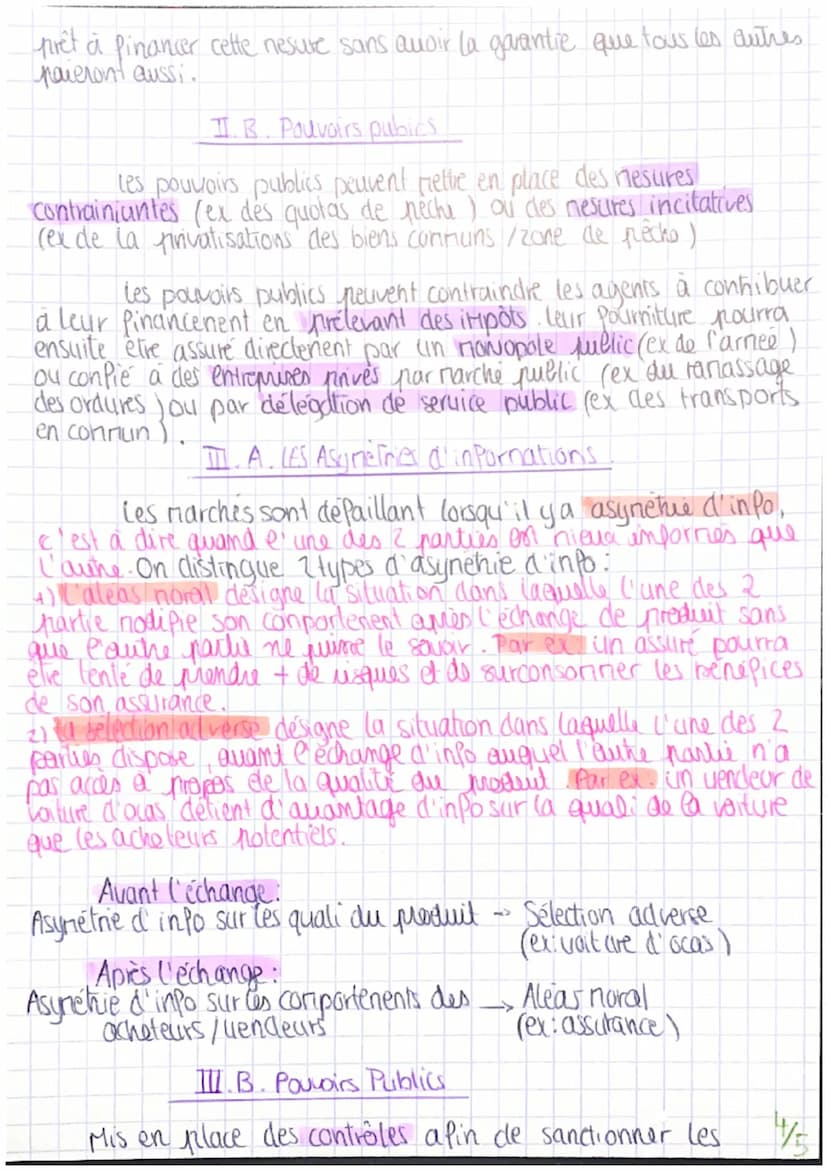 prêt à financer cette mesure sans avoir la garantie que tous les autres
paieront aussi.
II.B. Pouvoirs pubics
Les pouvoirs publics peuvent mettre en place des mesures
contrainiantes (ex des quotas de pêche) ou des mesures incitatives
(ex de la privatisations des biens communs / zone de pêche)
Les pouvoirs publics peuvent contraindre les agents à contribuer
à leur financement en prélevant des impôts. Leur fourniture pourra
ensuite être assuré directement par un monopole public (ex de l'armée)
ou confié à des entreprises privés par marché public (ex du ramassage
des ordures) ou par délégation de service public (ex des transports
en commun).
III.A. Les Asymétries d'informations
Les marchés sont défaillant lorsqu'il y a asymétrie d'info,
c'est à dire quand l'une des 2 parties est mieux informés que
l'autre. On distingue 2 types d'asymétrie d'info :
1) L'aléas moral désigne la situation dans laquelle l'une des 2
partie modifie son comportement après l'échange de produit sans
que l'autre partie ne puisse le savoir. Par ex un assuré pourra
être tenté de prendre + de risques et de surconsommer les bénéfices
de son assurance.
2) La sélection adverse désigne la situation dans laquelle l'une des 2
parties dispose, avant l'échange d'info auquel l'autre partie n'a
pas accès à propos de la qualité du produit. Par ex. un vendeur de
voiture d'ocas détient d'avantage d'info sur la quali de la voiture
que les acheteurs potentiels.
Avant l'échange :
Asymétrie d'info sur les quali du produit → Sélection adverse
(ex: voiture d'ocas)
Après l'échange :
Asymétrie d'info sur les comportements des → Aléas moral
acheteurs / vendeurs (ex: assurance)
III.B. Pouvoirs Publics
Mis en place des contrôles afin de sanctionner les
4/5